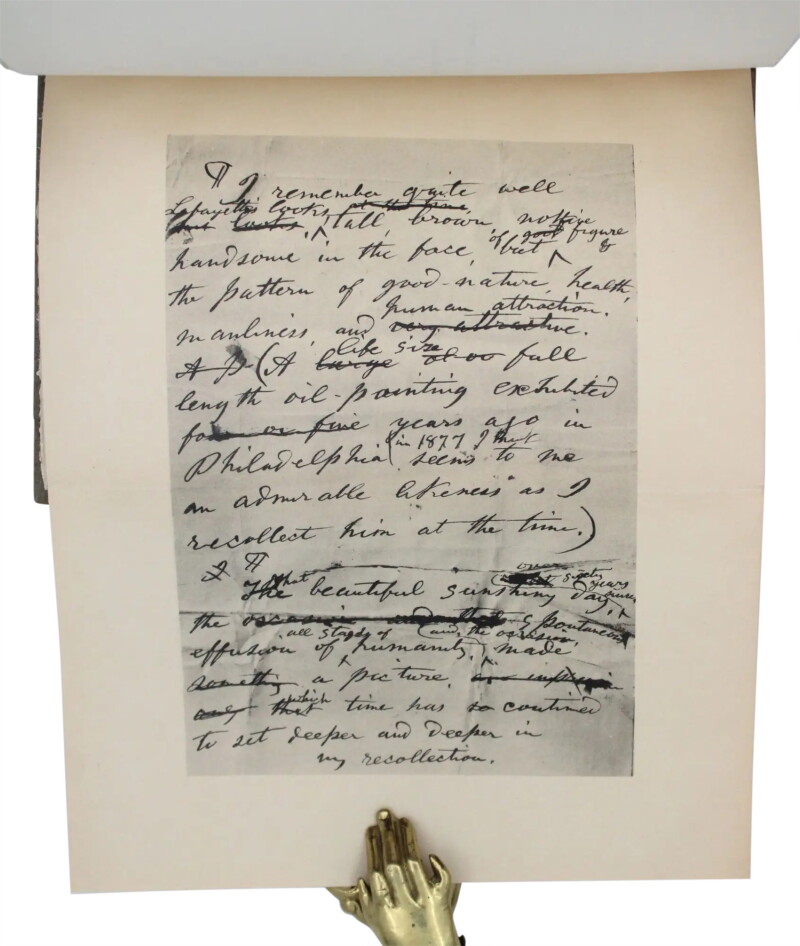 ¶ I remember quite well
Lafayette's looks, at the time
but looks, tall, brown, not
of good figure &
handsome in the face, but
the pattern of good-nature, health,
human attraction.
manliness, and very attractive.
life size
A (A large full
length oil-painting exhibited
four or five years ago in
(in 1877) that
Philadelphia seems to me
an admirable likeness as I
recollect him at the time.)
¶
that
over sixty years
The beautiful sunshiny day,
the occasion spontaneous
all stages of (and the occasion,
effusion of humanity, made
something a picture,
which
and that time has so continued
to set deeper and deeper in
my recollection.